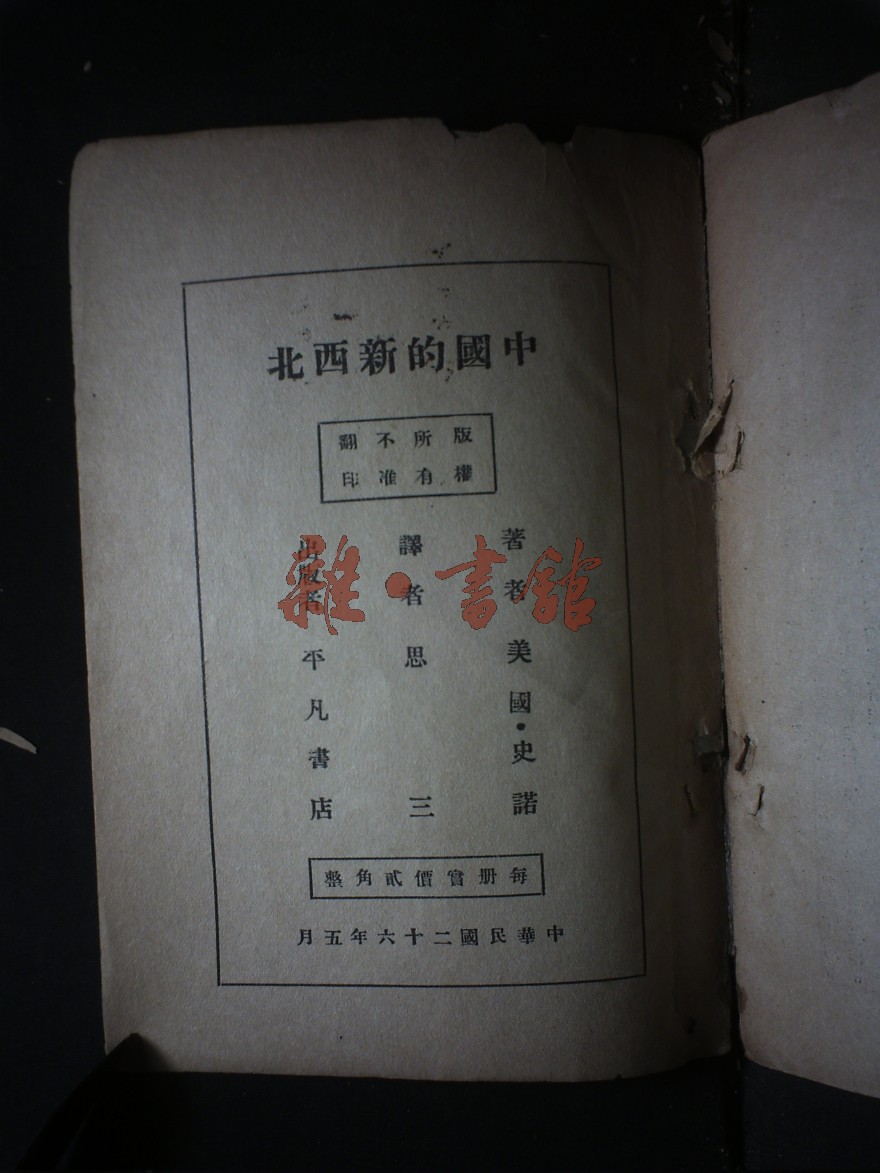 中國的新西北
版權所有
不准翻印
著者 美國·史諾
譯者 思三
出版者 平凡書店
每册實價貳角整
中華民國二十六年五月
雜·書館